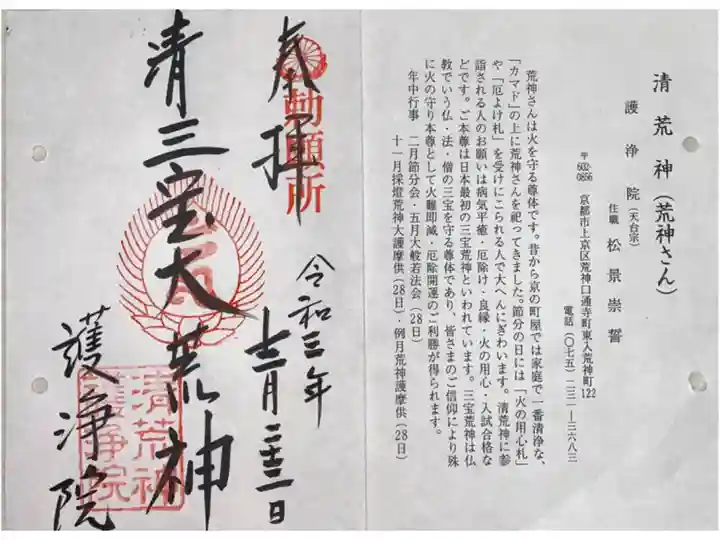 清荒神(荒神さん)
護浄院(天台宗)
住職 松景崇誓
〒602-0856 京都市上京区荒神口通寺町東入荒神町122
電話(〇七五)二三一―三六八三
荒神さんは火を守る尊体です。昔から京の町屋では家庭で一番清浄な、
「カマド」の上に荒神さんを祀ってきました。節分の日には「火の用心札」
や「厄よけ札」を受けにこられる人で大へんにぎわいます。清荒神に参
詣される人のお願いは病気平癒・厄除け・良縁・火の用心・入試合格な
どです。ご本尊は日本最初の三宝荒神といわれています。三宝荒神は仏
教でいう仏・法・僧の三宝を守る尊体であり、皆さまのご信仰により殊
に火の守り本尊として火難即滅・厄除開運のご利勝が得られます。
年中行事 二月節分会・五月大般若法会(28日)
十一月採燈荒神大護摩供(28日)・例月荒神護摩供(28日)
勅願所
奉拝
令和三年
十二月二十三日
清三宝大荒神
護浄院
清荒神
護浄院